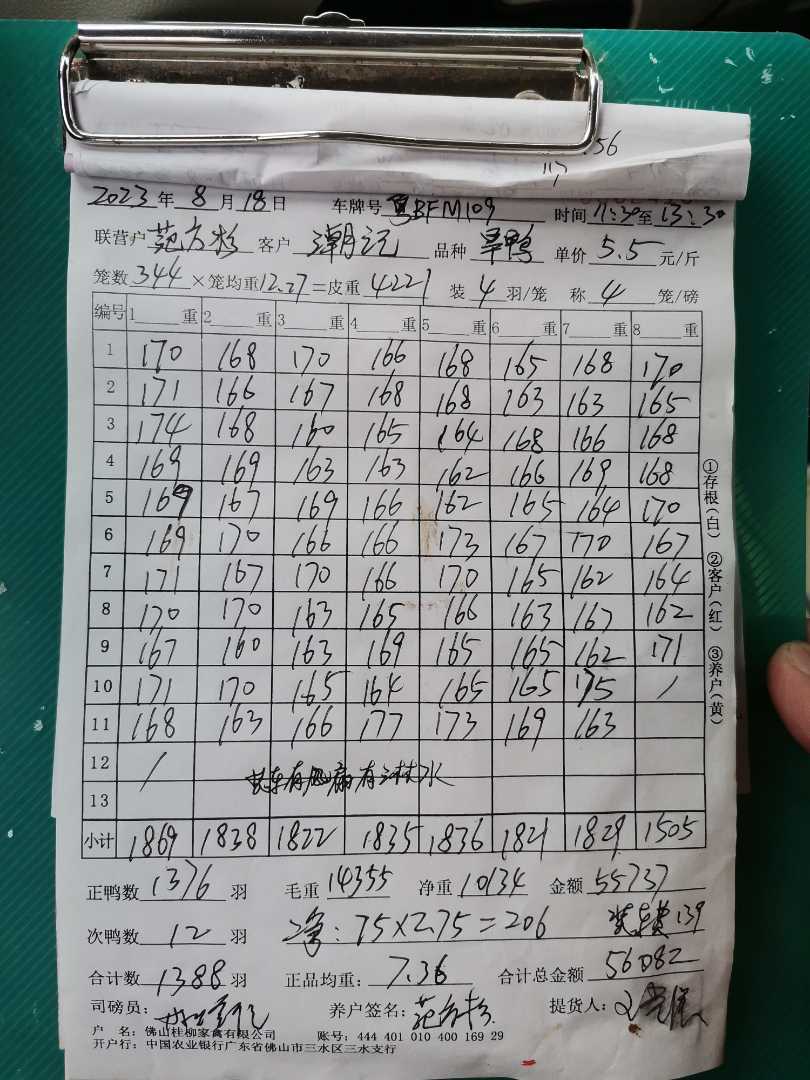 .56
2023 年 8 月 18 日 车牌号 粤BFM109 时间 11:30 至 13:30
联营户 范方杉 客户 潮记 品种 旱鸭 单价 5.5 元/斤
笼数 344 ×笼均重 12.27 =皮重 4221 装 4 羽/笼 称 4 笼/磅
编号 1 重 2 重 3 重 4 重 5 重 6 重 7 重 8 重
1 170 168 170 166 168 165 168 170
2 171 166 167 168 168 163 163 165
3 174 168 160 165 164 168 166 168
4 169 169 163 163 162 166 169 168
5 169 167 169 166 162 165 164 170
6 169 170 166 166 173 167 170 167
7 171 167 170 166 170 165 162 164
8 170 170 163 165 166 163 167 162
9 167 160 163 169 165 165 162 171
10 171 170 165 164 165 165 175 /
11 168 163 166 177 173 169 163
12 /
13
小计 1869 1838 1822 1835 1836 1821 1829 1505
正鸭数 1376 羽 毛重 14355 净重 10134 金额 55737
次鸭数 12 羽 净: 75×2.75=206 装车费 139
合计数 1388 羽 正品均重: 7.36 合计总金额 56082
司磅员: 养户签名: 范方杉 提货人:
户 名: 佛山桂柳家禽有限公司 账号: 444 401 010 400 169 29
开户行: 中国农业银行广东省佛山市三水区三水支行
①存根(白) ②客户(红) ③养户(黄)